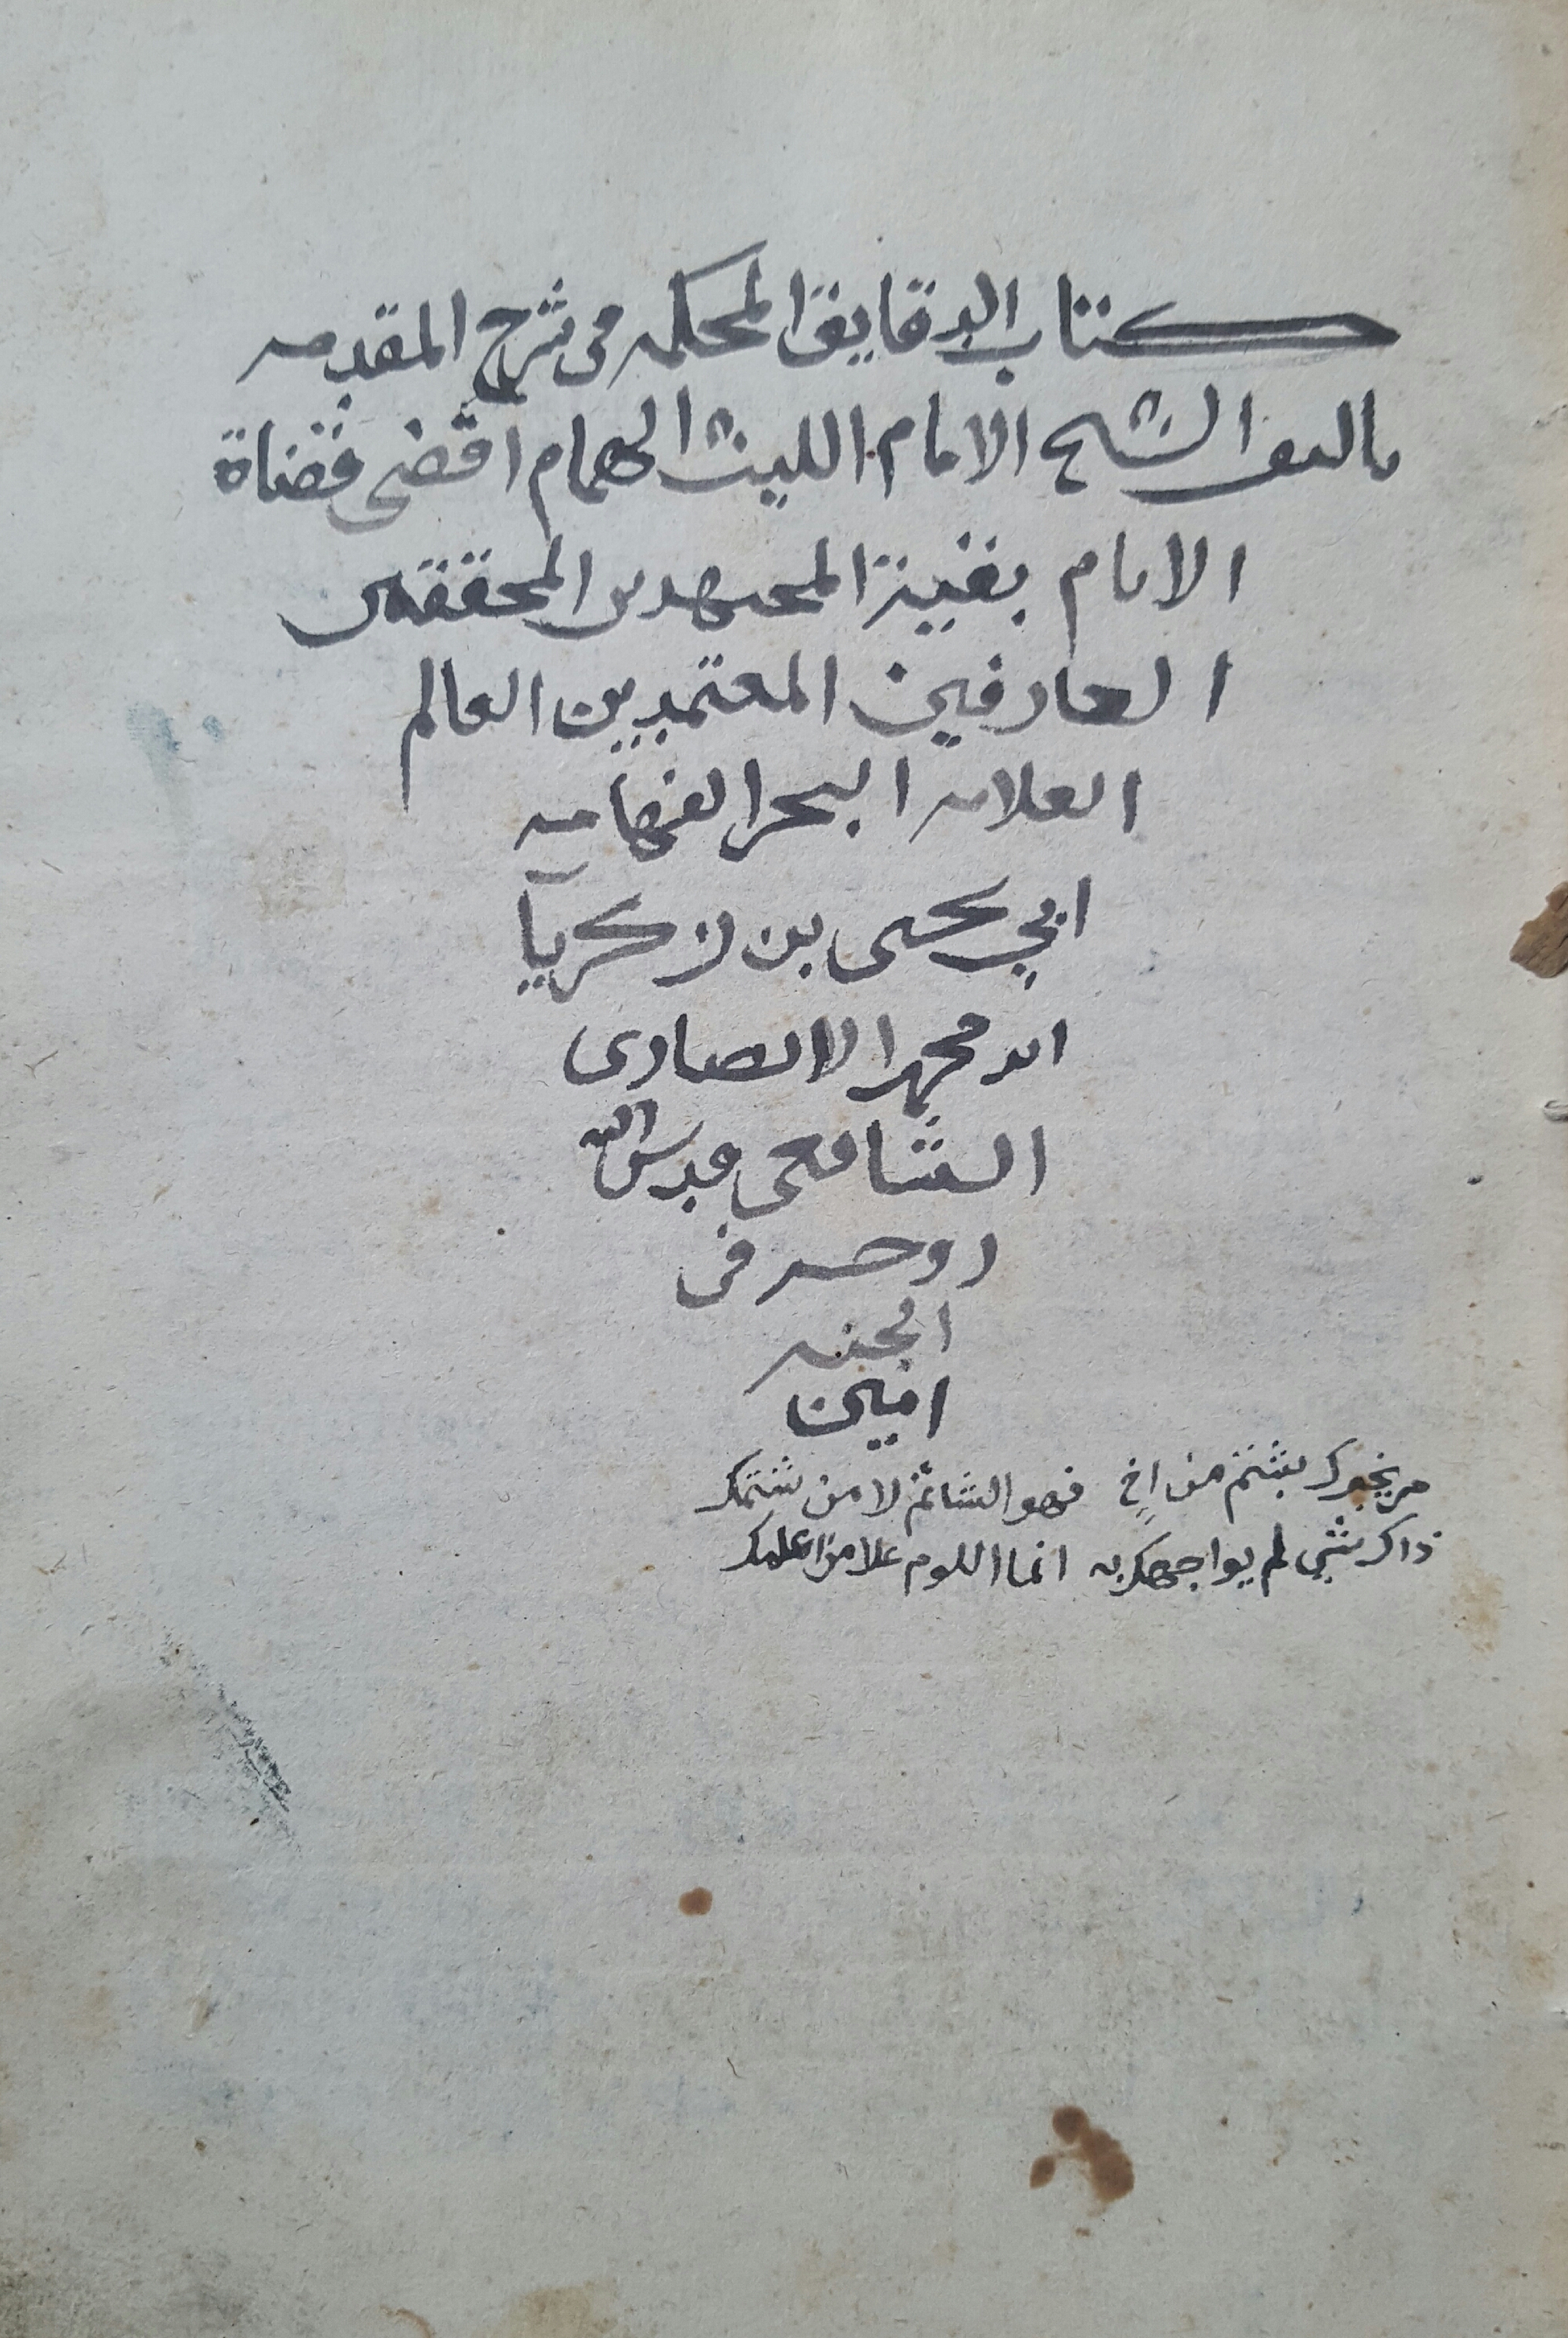 كتاب الدقايق المحكمه فى شرح المقدمه
تاليف الشيخ الامام الليث الهمام اقضى قضاة
الانام بغية المجتهدين المحققين
العارفين المعتمدين العالم
العلامه البحر الفهامه
ابي يحيى بن زكريآ
ابو محمد الانصارى
الشافعى قدس الله
روحه فى
الجنه
امين
من يخبرك بشتم من اخٍ فهو الشاتم لا من شتمك
ذاك شي لم يواجهك به انما اللوم علا من اعلمك